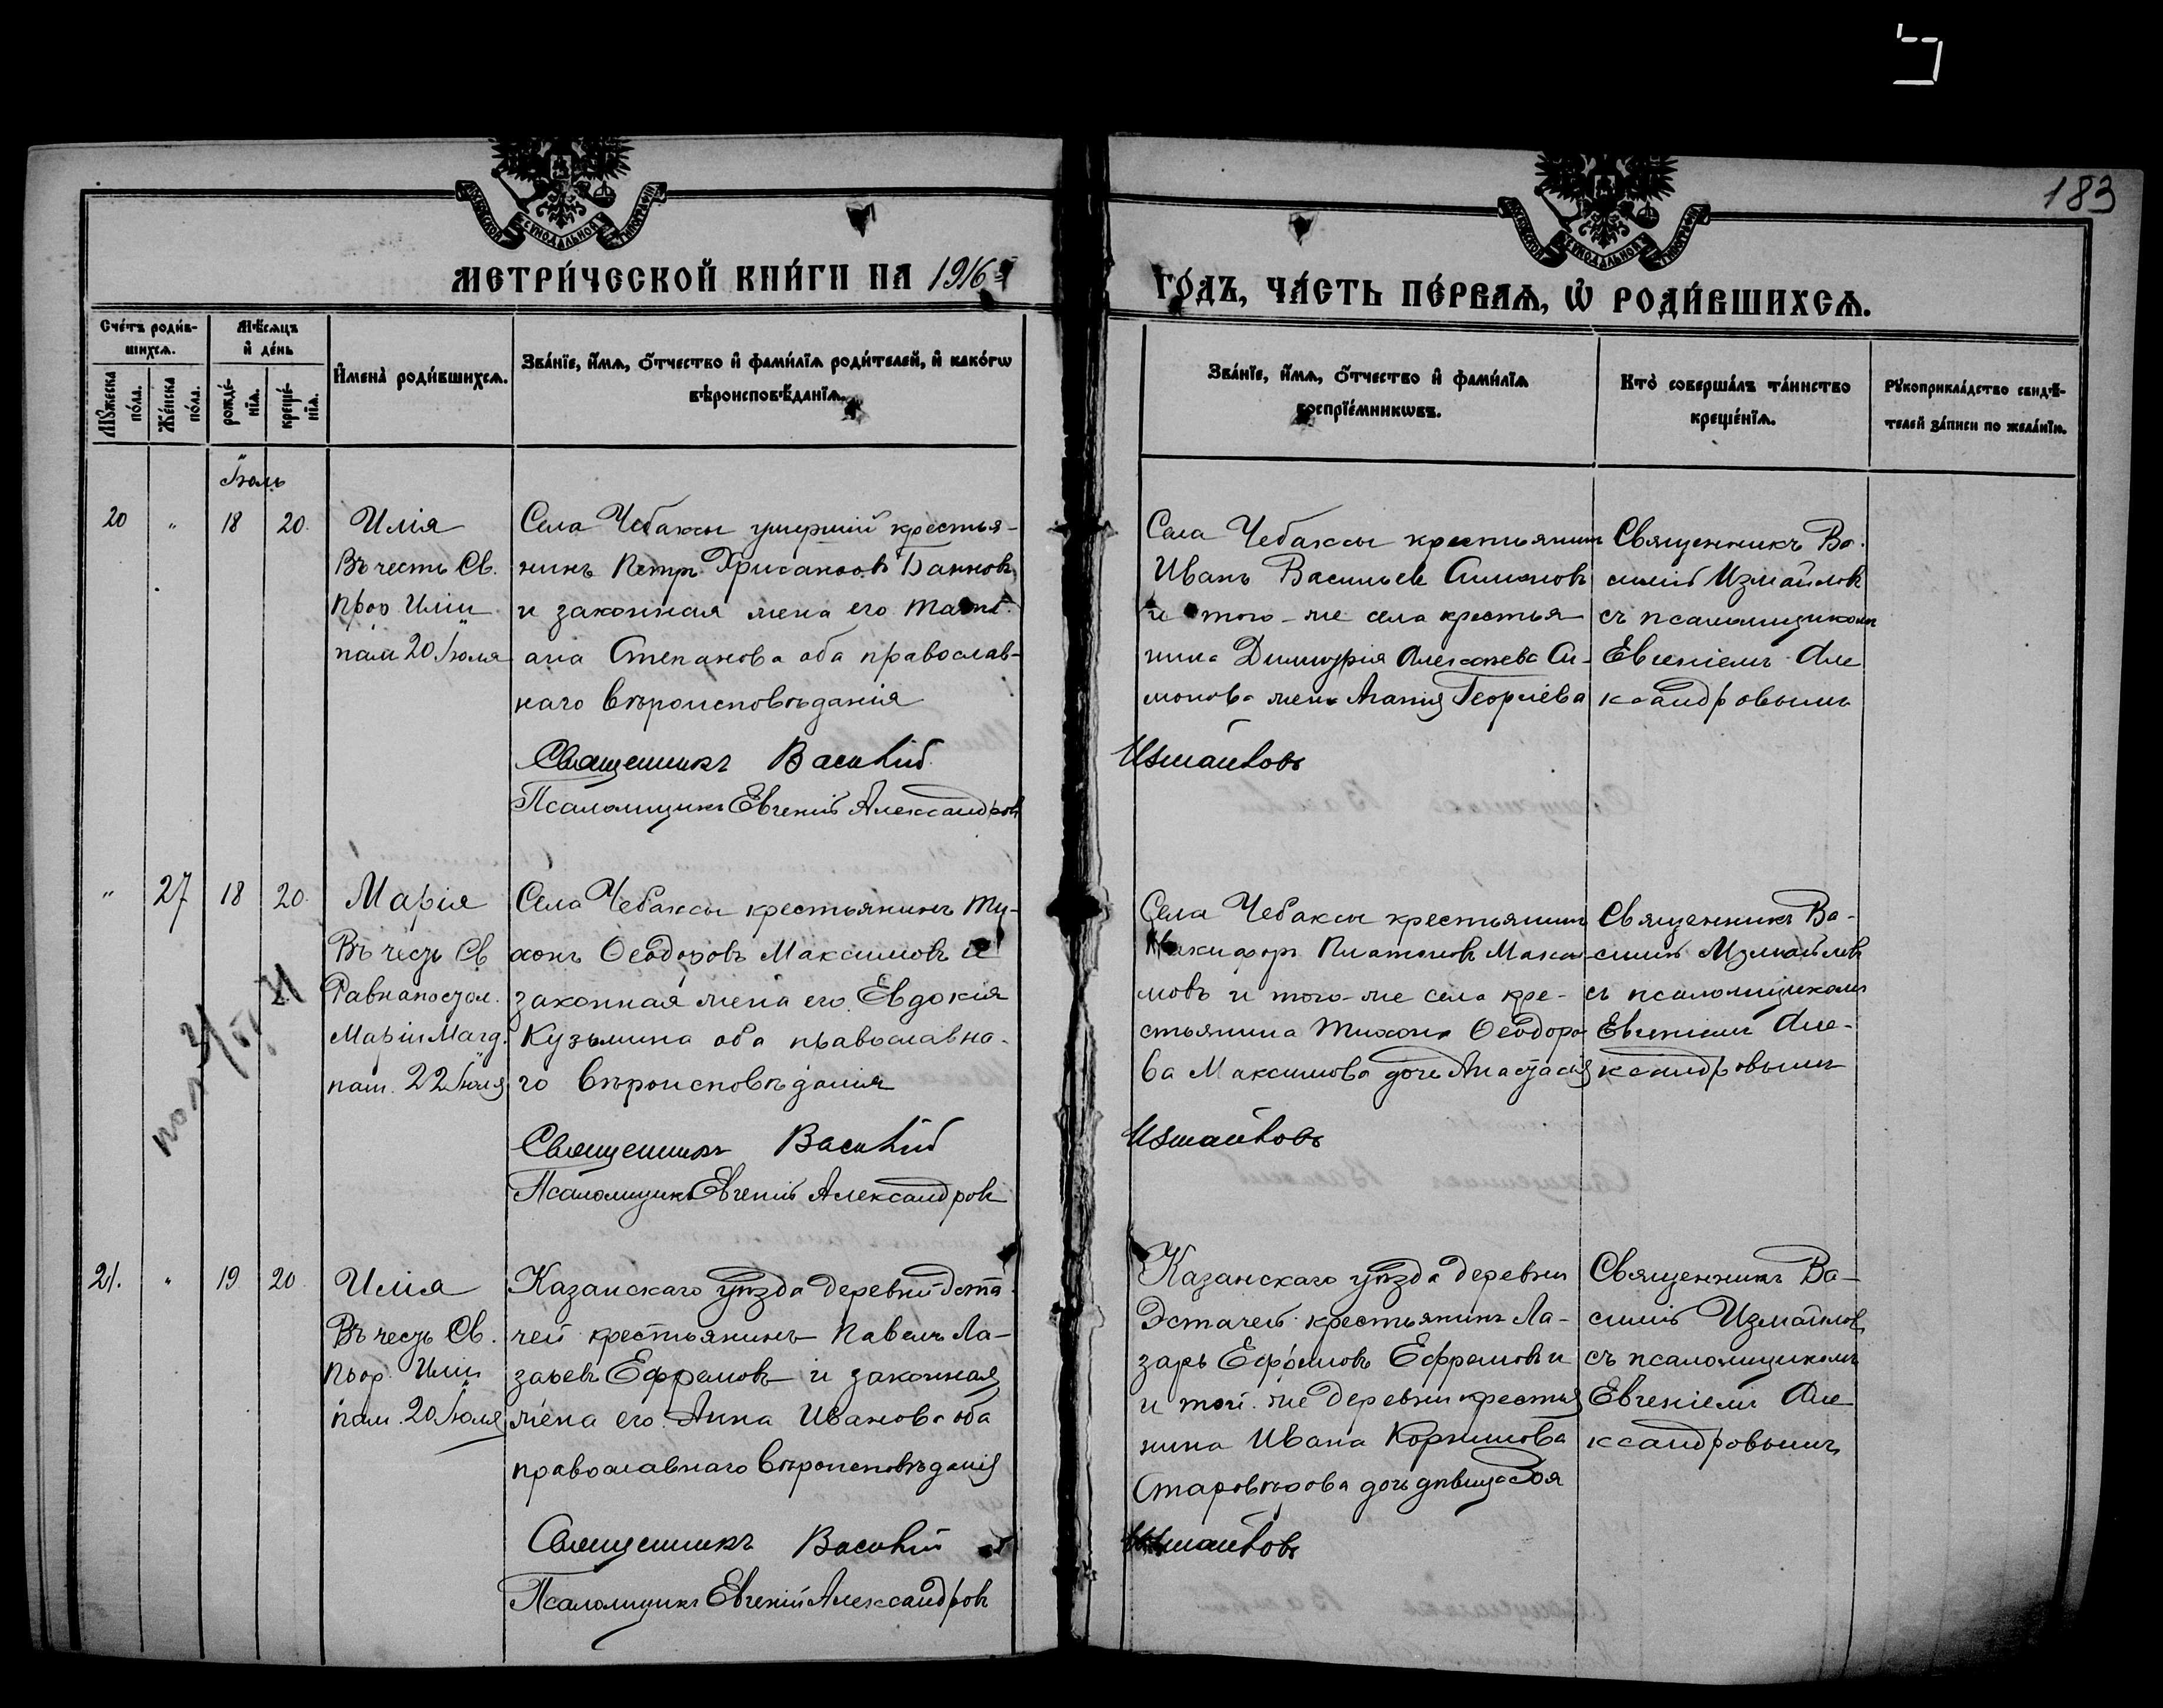 183
МОСКОВСКОЙ СѴНОДАЛЬНОЙ ТИПОГРАФІИ
МОСКОВСКОЙ СѴНОДАЛЬНОЙ ТИПОГРАФІИ
МЕТРИ́ЧЕСКОЙ КНИ́ГИ НА 1916
ГО́ДЪ, ЧА́СТЬ ПЕ́РВАѦ, Ѡ҆ РОДИ́ВШИХСѦ.
Сче́тъ роди́в-
шихсѧ.
Мѣ́сѧцъ
и҆ де́нь
Мꙋ́жеска
по́ла.
Же́нска
по́ла.
рожде́-
нїѧ.
креще́-
нїѧ.
И҆мена̀ роди́вшихсѧ.
Зва́нїе, и҆́мѧ, ѻ҆́тчество и҆ фами́лїѧ роди́телей, и҆ како́гѡ
вѣроисповѣ́данїѧ.
Зва́нїе, и҆́мѧ, ѻ҆́тчество и҆ фами́лїѧ
воспрїе́мникѡвъ.
Кто̀ соверша́лъ та́инство
креще́нїѧ.
Рꙋкоприкла́дство свидѣ́-
телей за́писи по жела́нїю.
Іюль
20 " 18 20.
Илія
Въ честь Св.
прор. Иліи
пам 20 Іюля
Села Чебаксы умершій крестья-
нинъ Петръ Хрисанѳовъ Банновъ
и законная жена его Тать
ана Степанова оба православ-
наго вѣроисповѣданія
Священникъ Василій
Псаломщикъ Евгеній Александровъ
Села Чебаксы крестьянинъ
Иванъ Васильевъ Симоновъ
и того-же села крестья
нина Димитрія Алексѣева Си-
монова жена Агапія Георгіева
Измайловъ
Священникъ Ва-
силій Измайловъ
съ псаломщикомъ
Евгеніемъ Але
ксандровымъ
" 27 18 20.
Марія
Въ честь Св
Равноапостол.
Маріи Магд.
пам. 22 Іюля
Села Чебаксы крестьянинъ Ти-
хонъ Ѳеодоровъ Максимовъ и
законная жена его Евдокія
Кузьмина оба православна-
го вѣроисповѣданія
Священникъ Василій
Псаломщикъ Евгеній Александровъ
Села Чебаксы крестьянинъ
Никифоръ Платоновъ Макси-
мовъ и того-же села кре-
стьянина Тихона Ѳеодоро-
ва Максимова дочь Анастасія
Измайловъ
Священникъ Ва-
силій Измайловъ
съ псаломщикомъ
Евгеніемъ Але-
ксандровымъ
21. " 19 20
Илія
Въ честь Св.
прор. Иліи
пам. 20 Іюля
Казанскаго уѣзда деревни Эста
чей крестьянинъ Павелъ Ла-
заревъ Ефремовъ и законная
жена его Анна Иванова оба
православнаго вѣроисповѣданія
Священникъ Василій
Псаломщикъ Евгеній Александровъ
Казанскаго уѣзда деревни
Эстачей крестьянинъ Ла-
зарь Ефремовъ Ефремовъ и
и той же деревни крестья
нина Ивана Корнилова
Старовѣрова дочь дѣвица Зоя
Измайловъ
Священникъ Ва-
силій Измайловъ
съ псаломщикомъ
Евгеніемъ Але
ксандровымъ